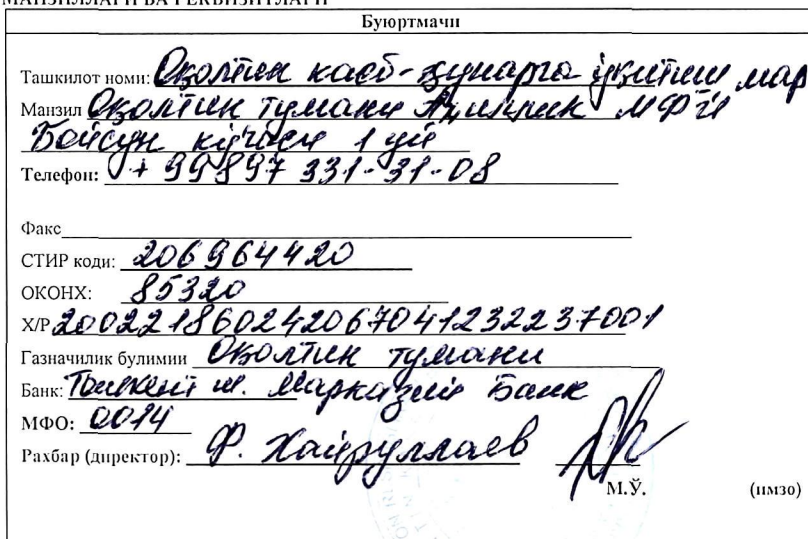 МАНЗИЛЛАРИ ВА РЕКВИЗИТЛАРИ
Буюртмачи
Ташкилот номи: Оқолтин касб-ҳунарга ўқитиш мар
Манзил Оқолтин тумани МФЙ
Бойсун кўчаси 1 уй
Телефон: + 99897 331-31-08
Факс
СТИР коди: 206964420
ОКОНХ: 85320
Х/Р 200221860242067041232237001
Газначилик булимии Оқолтин тумани
Банк: Тошкент ш. Марказий Банк
МФО: 0014
Рахбар (директор): Ф. Хайруллаев
М.Ў. (имзо)